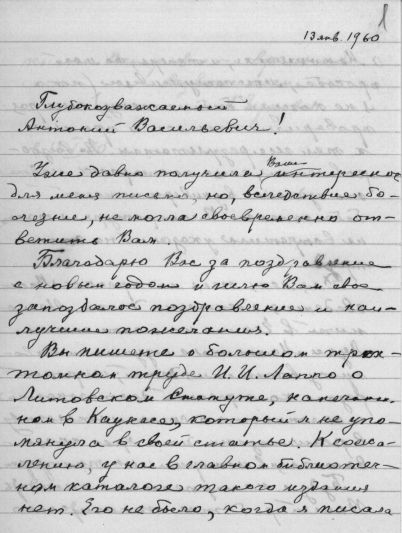 1
13 янв. 1960
Глубокоуважаемый
Антоний Васильевич!
Уже давно получила Ваше интересное
для меня письмо, но, вследствие бо-
лезни, не могла своевременно от-
ветить Вам.
Благодарю Вас за поздравление
с новым годом и шлю Вам свое
запоздалое поздравление и наи-
лучшие пожелания.
Вы пишете о большом трех-
томном труде И. И. Лаппо о
Литовском Статуте, напечатан-
ном в Каунасе, который я не упо-
мянула в своей статье. К сожа-
лению, у нас в главном библиотеч-
ном каталоге такого издания
нет. Его не было, когда я писала